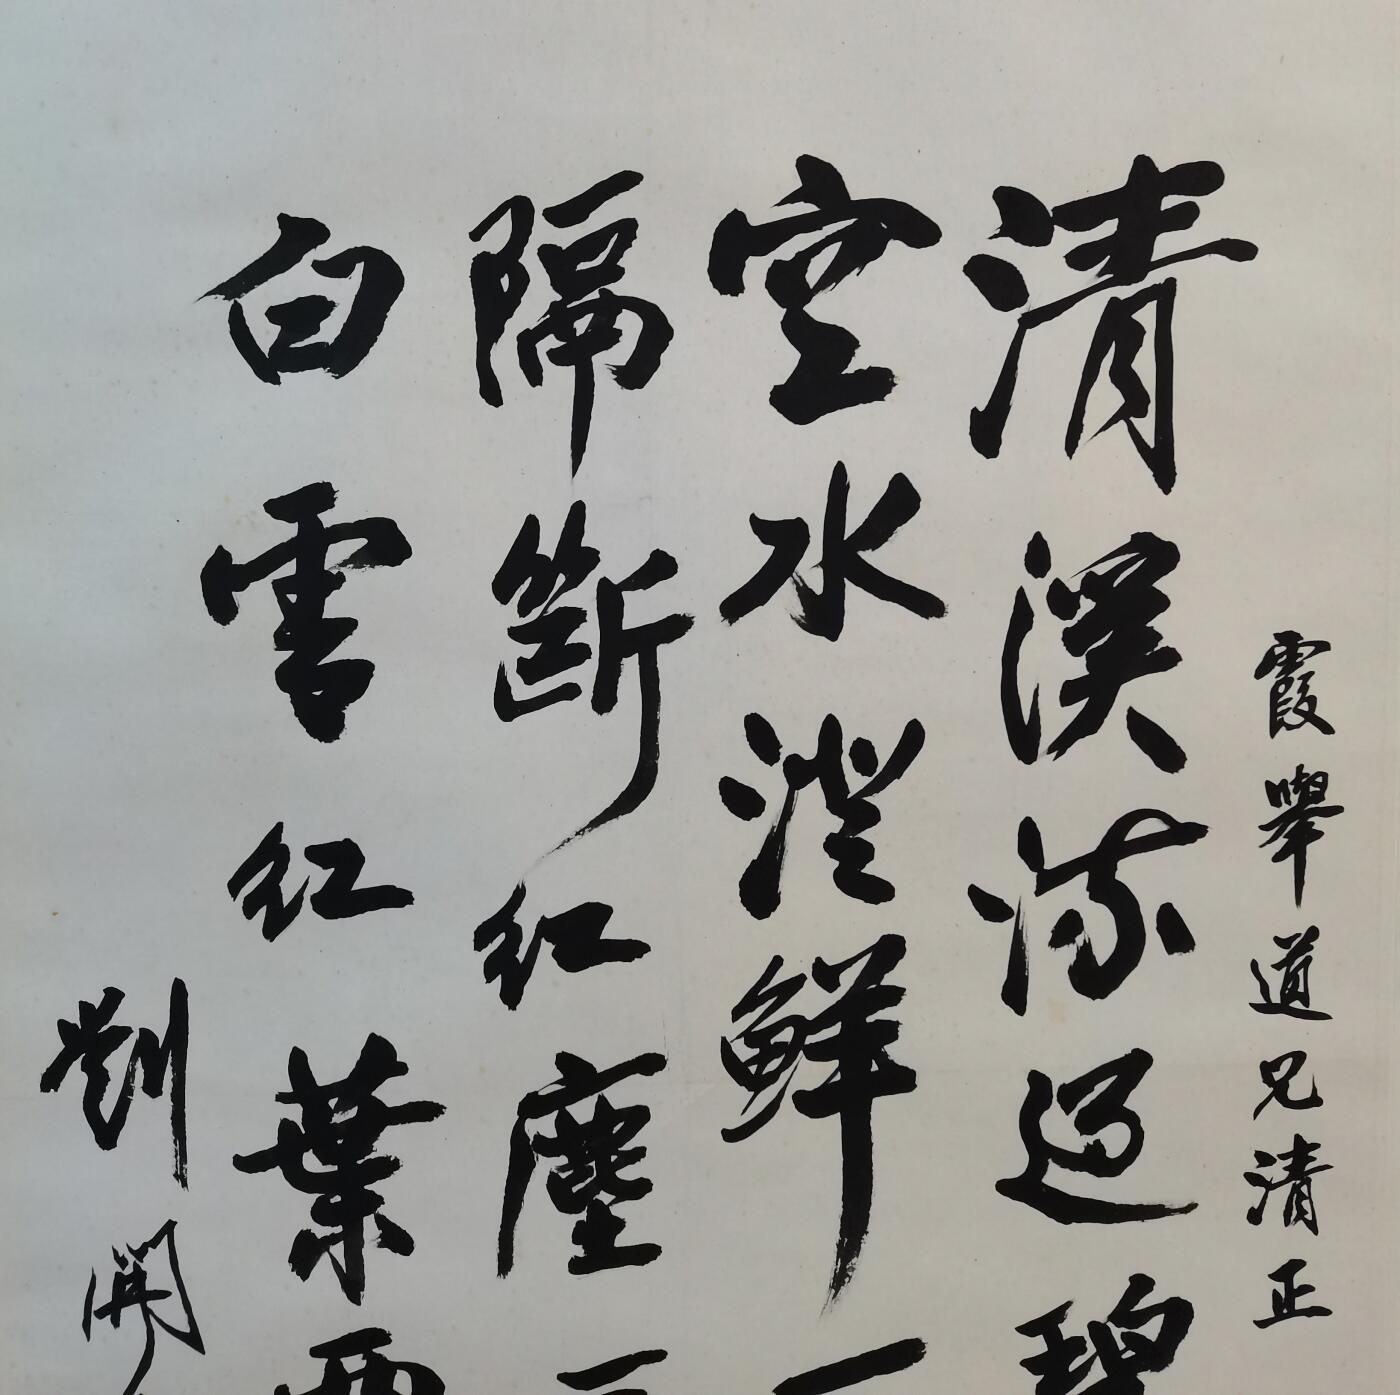 霞舉道兄清正
清溪流過碧
空水澄鮮一
隔斷紅塵三
白雲紅葉兩
劉開